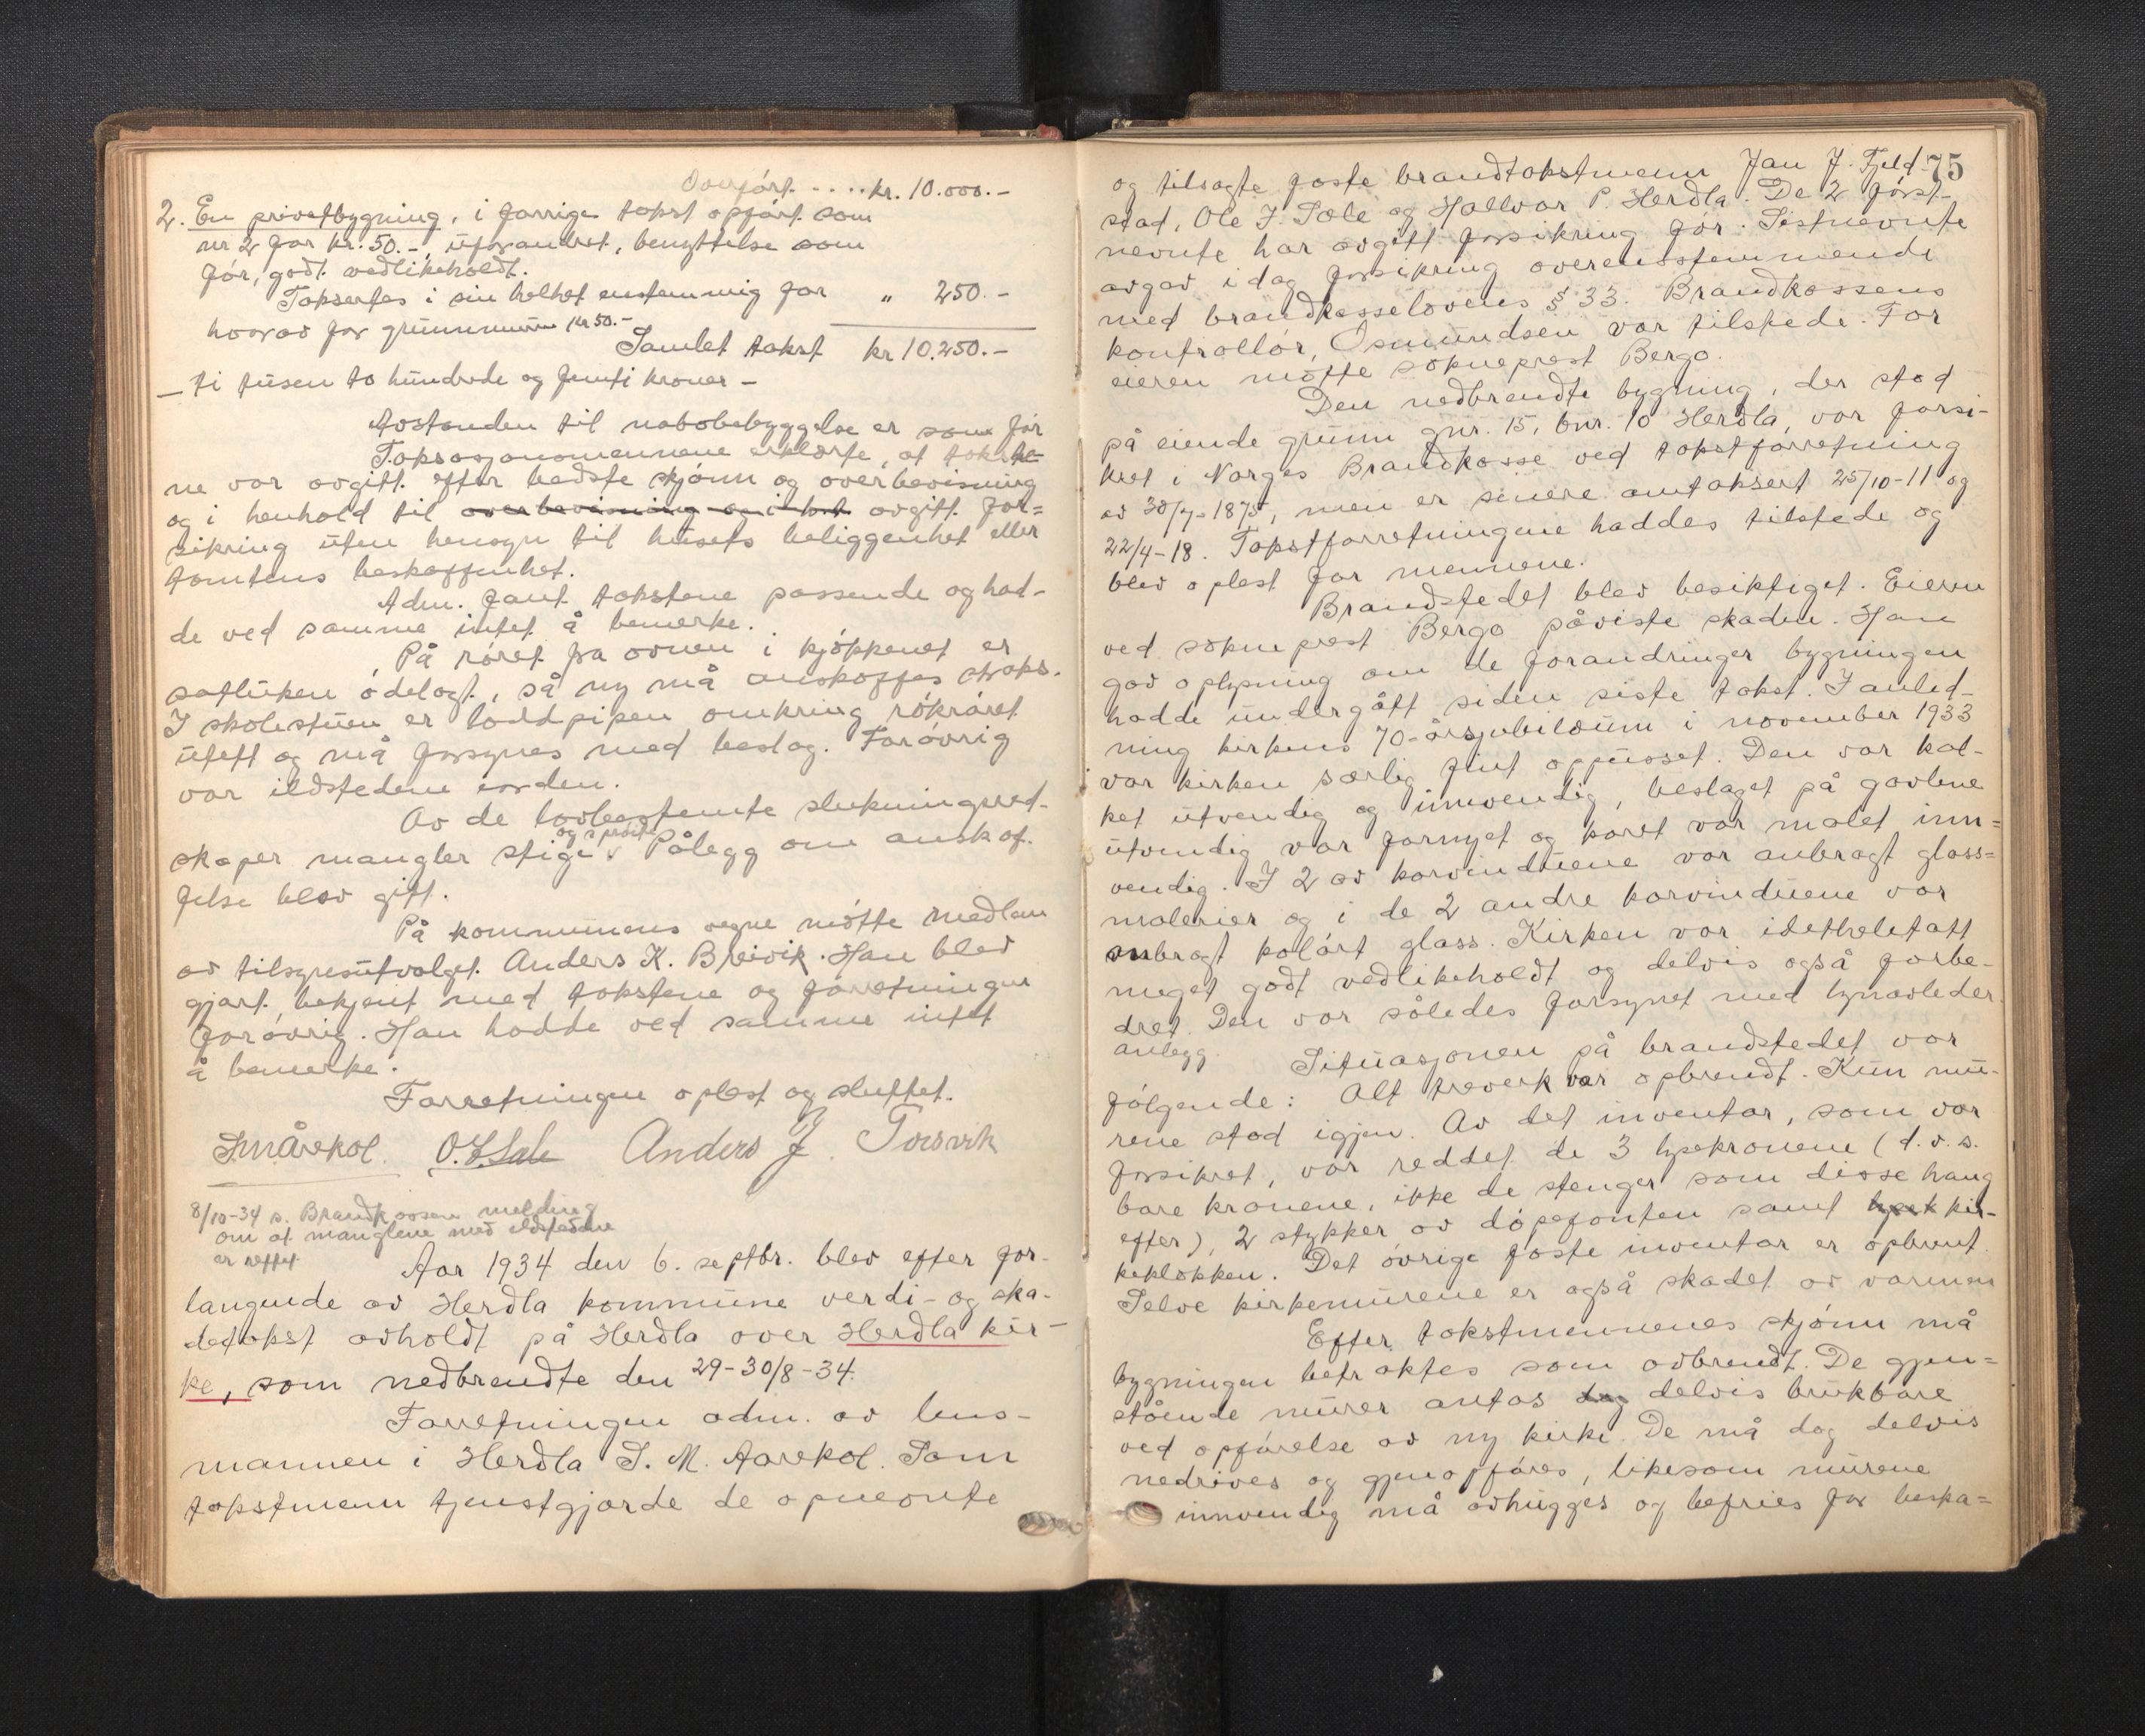 Overført .... kr. 10.000.-
2. En privetbygning, i forrige takst opført som
nr 2 for kr. 50.-, uforandret, benyttelse som
før, godt vedlikeholdt.
Takseres i sin helhet enstemmig for " 250.-
hvorav for grunnmuren kr 50.-
Samlet takst kr 10.250.-
- ti tusen to hundrede og femti kroner -
Avstanden til nabobebyggelse er som før
Taksasjonsmennene erklærte, at takste-
ne var avgitt efter bedste skjønn og overbevisning
og i henhold til overbevisning og i hnt avgitt for=
sikring uten hensyn til husets beliggenhet eller
tomtens beskaffenhet.
Adm. fant takstene passende og had-
de ved samme intet å bemerke.
På røret fra ovnen i kjøkkenet er
sotluken ødelagt, så ny må anskaffes straks.
I skolestuen er loddpipen omkring røkrøret
utett og må forsynes med beslag. Forøvrig
var ildstedene iorden.
Av de lovbestemte slukningsred-
skaper mangler stige og sprøite. Pålegg om anskaf-
felse blev gitt.
På kommunens vegne møtte medlem
av tilsynsutvalget Anders K. Breivik. Han blev
gjort bekjent med takstene og forretningen
forøvrig. Han hadde ved samme intet
å bemerke.
Forretningen oplest og sluttet.
Småvekol. O. J. Sæle Anders J. Torsvik
8/10-34 s. Brandkassen melding
om at manglene med ildstedene
er rettet
Aar 1934 den 6. septbr. blev efter for-
langende av Herdla kommune verdi- og ska-
detakst avholdt på Herdla over Herdla kir-
ke, som nedbrendte den 29-30/8-34.
Forretningen adm. av lens-
mannen i Herdla S. M. Aarekol. Som
takstmenn tjenstgjorde de opnevnte
75
og tilsagte faste brandtakstmenn Jan J. Fjeld-
stad, Ole J. Sæle og Hallvar P. Herdla. De 2 først-
nevnte har avgitt forsikring før. Sistnevnte
avgav idag forsikring overensstemmende
med brandkasselovens § 33. Brandkassens
kontrollør, Osmundsen var tilstede. For
eieren møtte sokneprest Bergo.
Den nedbrendte bygning, der stod
på eiende grunn gnr. 15, bnr. 10 Herdla, var forsi-
kret i Norges Brandkasse ved takstforretning
av 30/7-1875, men er senere omtaksert 25/10-11 og
22/4-18. Takstforretningene haddes tilstede og
blev oplest for mennene.
Brandstedet blev besiktiget. Eieren
ved sokneprest Bergo påviste skaden. Han
gav oplysning om de forandringer bygningen
hadde undergått siden siste takst. I anled-
ning kirkens 70-årsjubileum i november 1933
var kirken særlig fint oppusset. Den var kal-
ket utvendig og innvendig, beslaget på gavlene
utvendig var fornyet og koret var malet inn=
vendig. I 2 av korvinduene var anbragt glass=
malerier og i de 2 andre korvinduene var
anbragt kolørt glass. Kirken var idetheletatt
meget godt vedlikeholdt og delvis også forbe-
dret. Den var således forsynet med lynavleder
anlegg.
Situasjonen på brandstedet var
følgende: Alt treverk var opbrendt. Kun mu-
rene stod igjen. Av det inventar, som var
forsikret, var reddet de 3 lysekronene (d.v.s.
bare kronene, ikke de stenger som disse hang
efter), 2 stykker av døpefonten samt lyset kir-
keklokken. Det øvrige faste inventar er opbrent.
Selve kirkemurene er også skadet av varmen
Efter takstmennenes skjønn må
bygningen betraktes som avbrendt. De gjen=
stående murer antas dog delvis brukbare
ved opførelse av ny kirke. De må dog delvis
nedrives og gjenopføres, likesom murene
innvendig må avhugges og befries for beska=